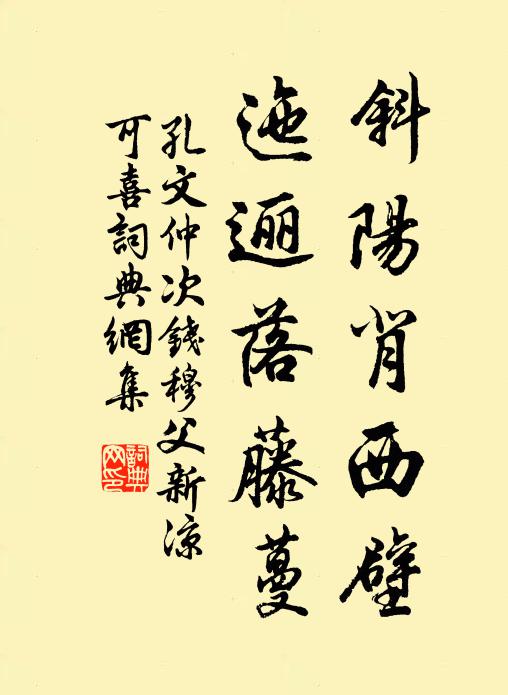 斜陽背西壁
迤逦落藤蔓
孔文仲次錢穆父新涼
可喜詞典網集
詞典
网印